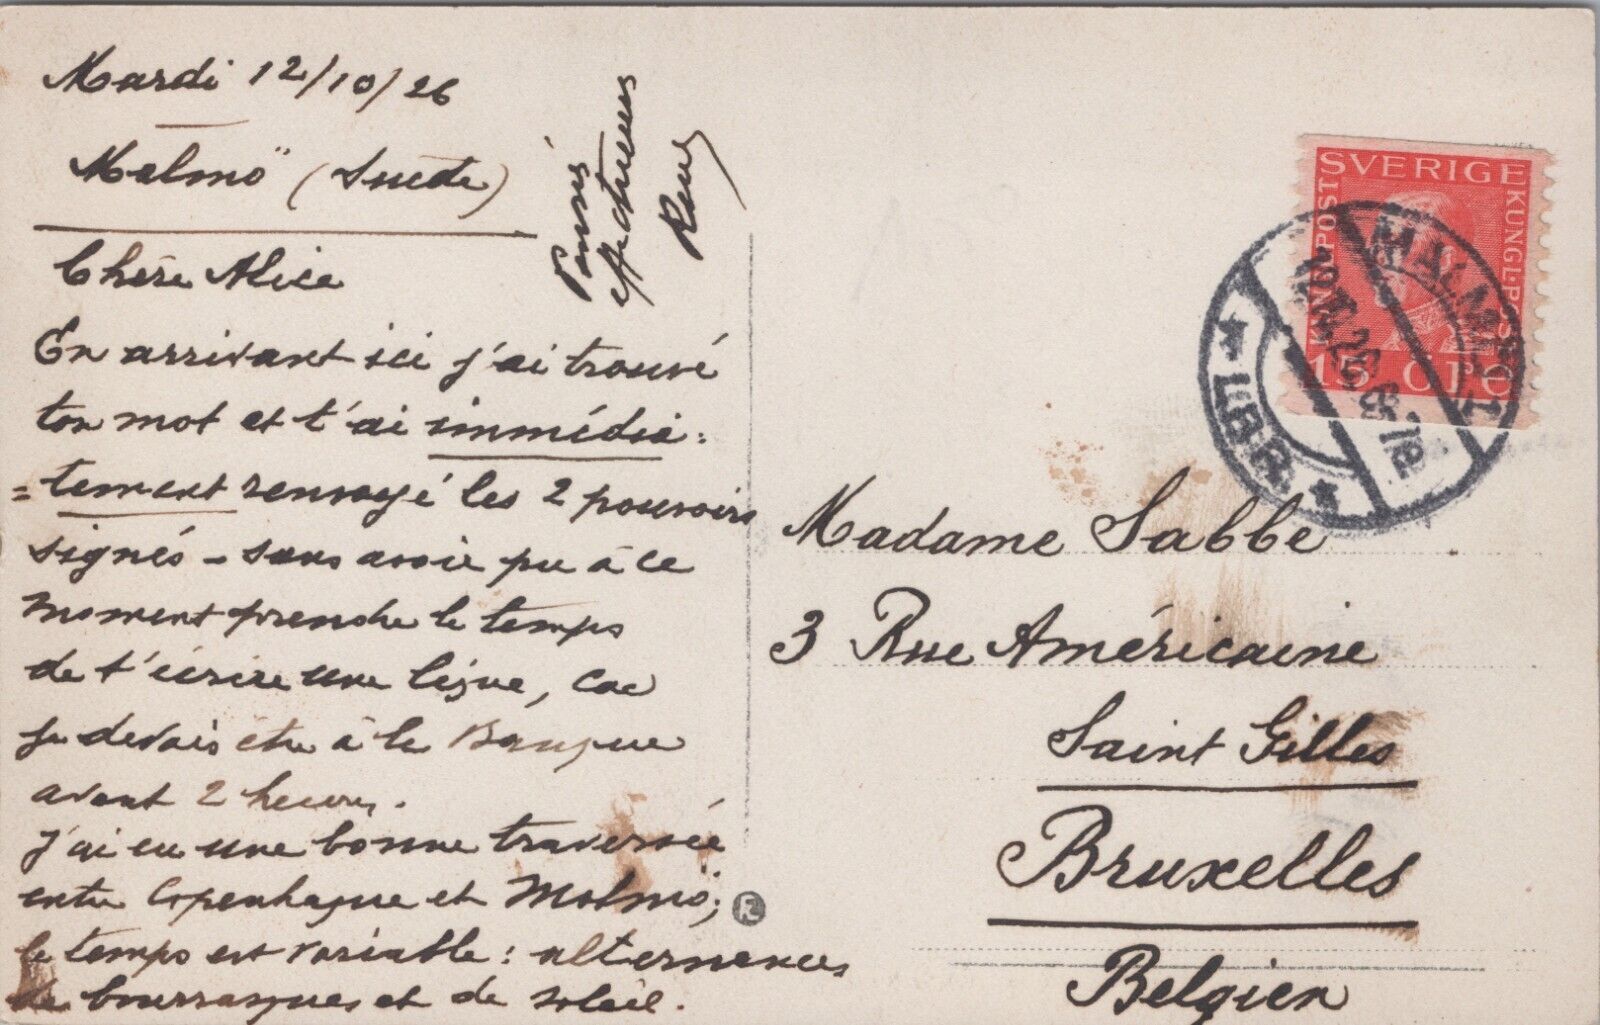 Mardi 12/10/26
Malmö (Suède)
Chère Alice
En arrivant ici j'ai trouvé
ton mot et t'ai immédia=
=tement renvoyé les 2 pouvoirs
signés - sans avoir pu à ce
moment prendre le temps
de t'écrire une ligne, car
je devais être à la Banque
avant 2 heures.
J'ai eu une bonne traversée
entre Copenhague et Malmö;
le temps est variable : alternances
de bourrasques et de soleil.
affectueux
René
SVERIGE
KUNGL. POST
KUNGL. POST
15 ÖRE
MALMÖ 1
LBR
Madame Sabbe
3 Rue Américaine
Saint Gilles
Bruxelles
Belgien